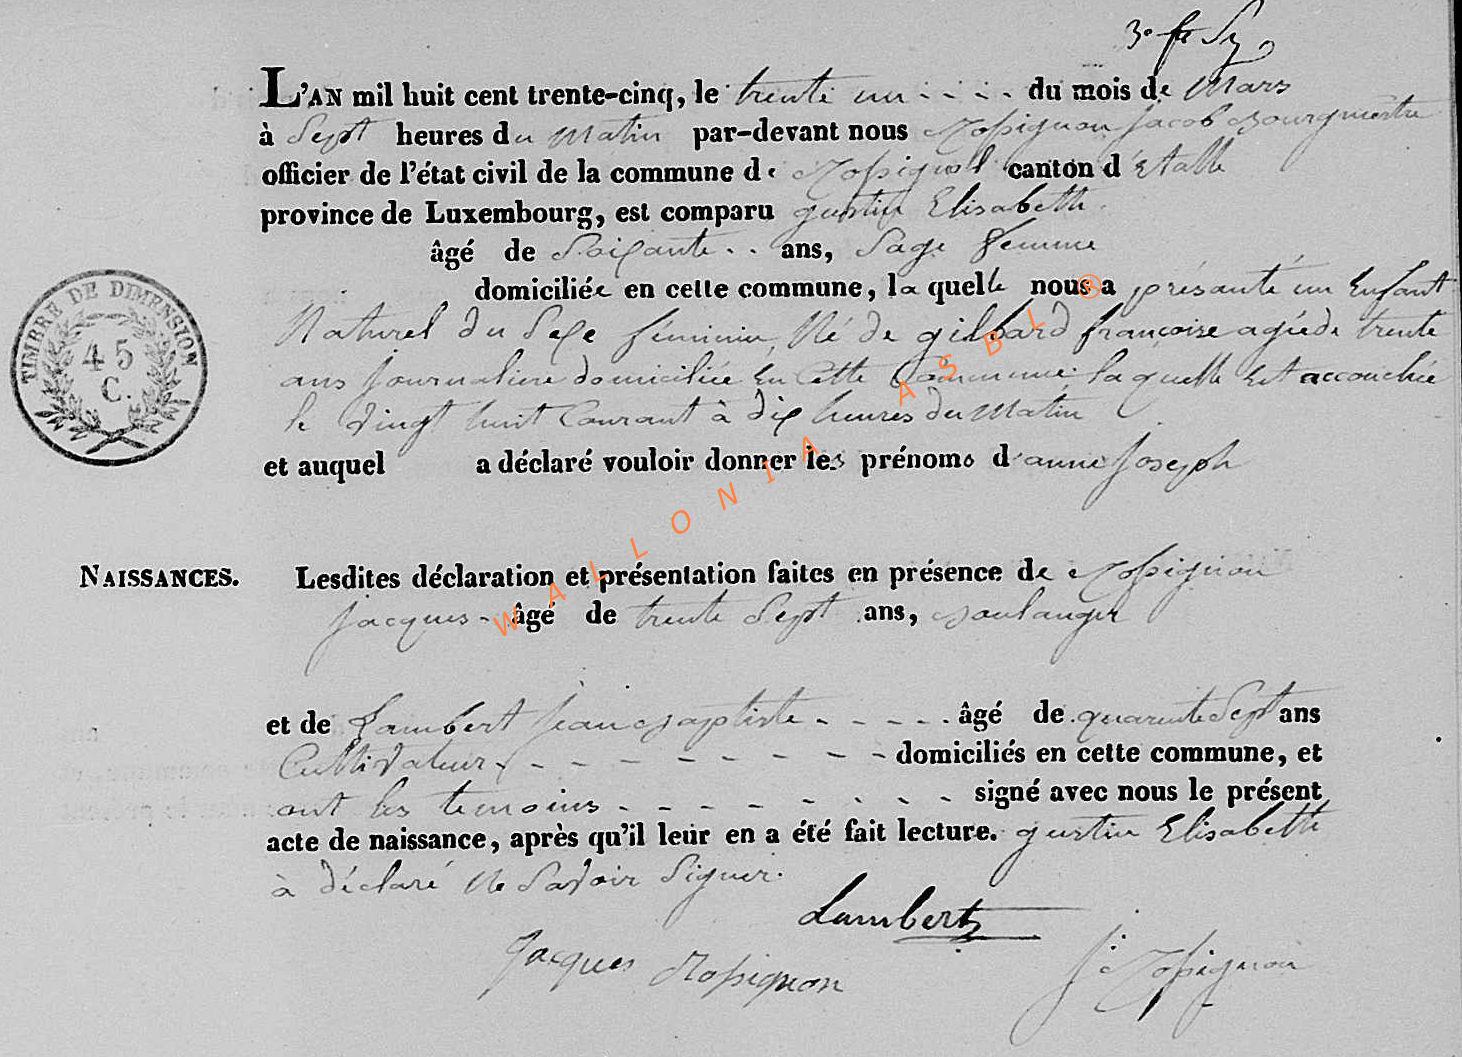 3e fe Sy
L'AN mil huit cent trente-cinq, le trente un - - - - du mois de Mars
à Sept heures du Matin par-devant nous Rossignon Jacob Bourgmestre
officier de l'état civil de la commune de Rossignol canton d'Etalle
province de Luxembourg, est comparu gustin Elisabeth
âgé de Soixante - - ans, Sage femme
domiciliée en cette commune, la quelle nous a présanté un Enfant
Naturel du Sexe féminin, Né de gilbard françoise agéede trente
ans Journaliere domiciliée En Cette Commune laquelle Est accouchée
le vingt huit Courant à dix heures du Matin
et auquel a déclaré vouloir donner les prénoms d'anne Joseph
NAISSANCES.
Lesdites déclaration et présentation faites en présence de Rossignon
Jacques - âgé de trente Sept ans, Boulanger
et de Lambert Jean Baptiste - - - - - âgé de quarente Sept ans
Cultivateur - - - - - - - - - domiciliés en cette commune, et
ont les temoins - - - - - - - - - signé avec nous le présent
acte de naissance, après qu'il leur en a été fait lecture. gustin Elisabeth
à déclaré Ne Savoir Signer.
Lambert
Jacques Rossignon
J: Rossignon
TIMBRE DE DIMENSION
45
C.
WALLONIA ASBL ®